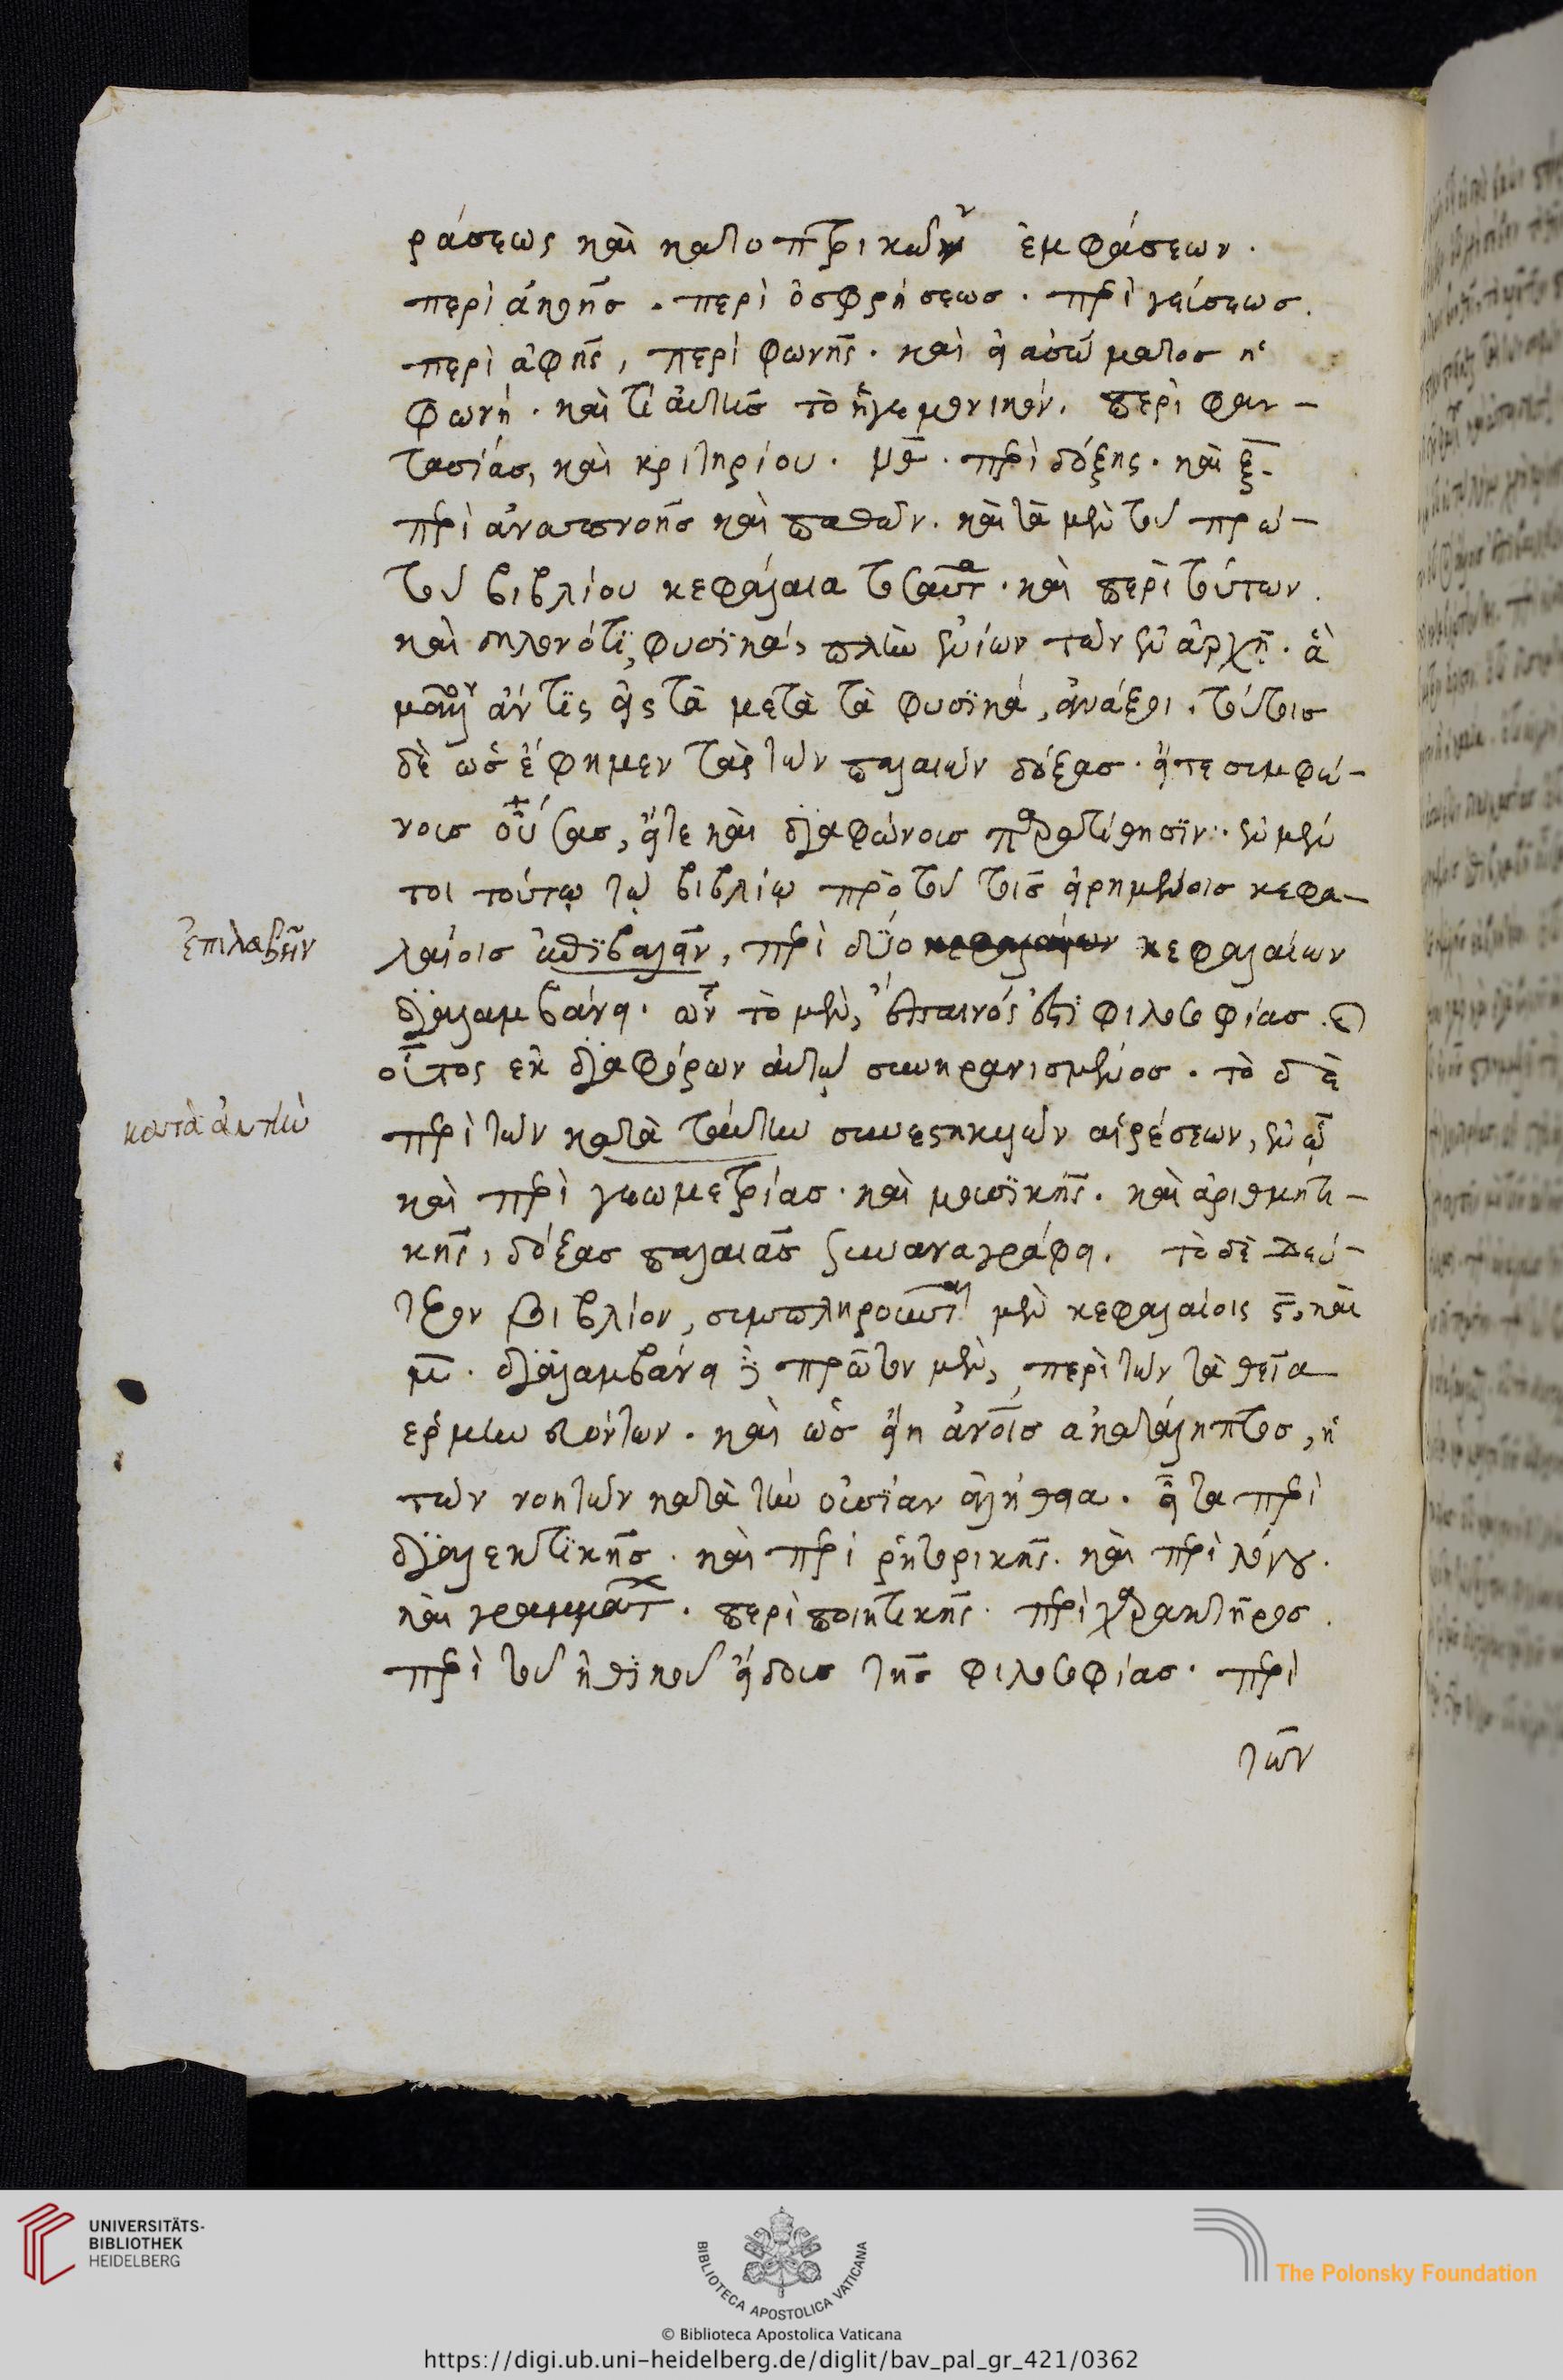 ράσεως καὶ κατοπτρικῶν ἐμφάσεων.
περὶ ἀκοῆς. περὶ ὀσφρήσεως. περὶ γεύσεως.
περὶ ἁφῆς, περὶ φωνῆς. καὶ εἰ ἀσώματος ἡ
φωνή. καὶ τί αὐτῆς τὸ ἡγεμονικόν. περὶ φαν-
τασίας, καὶ κριτηρίου. μθ. περὶ δόξης. καὶ ξ.
περὶ ἀναπνοῆς καὶ παθῶν. καὶ τὰ μὲν τοῦ πρώ-
του βιβλίου κεφάλαια τοσαῦτα. καὶ περὶ τούτων.
καὶ δηλονότι, φυσικά, πλὴν ἐνίων τῶν ἐν ἀρχῇ. ἃ
μᾶλλον ἄν τις εἰς τὰ μετὰ τὰ φυσικά, ἀνάξει. τούτοις
δὲ ὡς ἔφημεν τὰς τῶν παλαιῶν δόξας. εἴτε συμφώ-
νοις οὔσας, εἴτε καὶ διαφώνοις παρατίθησιν. ἐν μέν
τοι τούτῳ τῷ βιβλίῳ πρὸ τοῦ τοῖς εἰρημένοις κεφα-
λαίοις ἐπιβαλεῖν, περὶ δύο κεφαλαίων
διαλαμβάνει. ὧν τὸ μὲν, ἔπαινός ἐστι φιλοσοφίας. ὁ
οὗτος ἐκ διαφόρων αὐτῷ συνηρανισμένος. τὸ δὲ
περὶ τῶν κατὰ ταύτην συνεστηκυιῶν αἱρέσεων, ἐν ᾧ
καὶ περὶ γεωμετρίας. καὶ μουσικῆς. καὶ ἀριθμητι-
κῆς, δόξας παλαιὰς συναναγράφει. τὸ δὲ δεύ-
τερον βιβλίον, συμπληροῦται μὲν κεφαλαίοις ς, καὶ
μ. διαλαμβάνει δὲ πρῶτον μὲν, περὶ τῶν τὰ θεῖα
ἑρμηνευόντων. καὶ ὡς εἴη ἀνοις ἀκατάληπτος, ἡ
τῶν νοητῶν κατὰ τὴν οὐσίαν ἀλήθεια. εἶτα περὶ
διαλεκτικῆς. καὶ περὶ ῥητορικῆς. καὶ περὶ λόγου.
καὶ γραμμάτων. περὶ ποιητικῆς. περὶ χαρακτῆρος.
περὶ τοῦ ἠθικοῦ εἴδους τῆς φιλοσοφίας. περὶ
τῶν
ἐπιλαβεῖν
κατὰ αὐτὴν
UNIVERSITÄTS-
BIBLIOTHEK
HEIDELBERG
BIBLIOTECA APOSTOLICA VATICANA
The Polonsky Foundation
© Biblioteca Apostolica Vaticana
https://digi.ub.uni-heidelberg.de/diglit/bav_pal_gr_421/0362